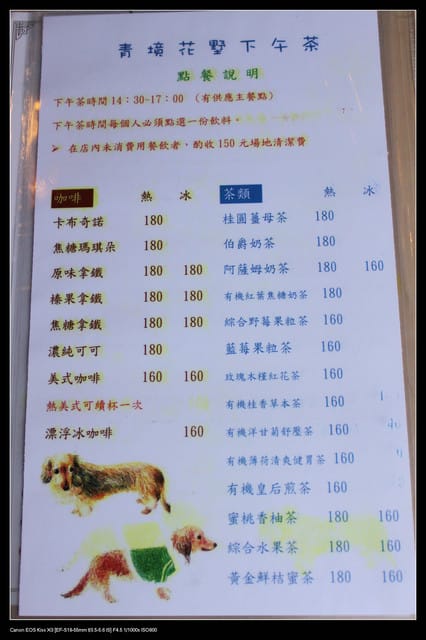 青境花墅下午茶
點餐說明
下午茶時間14：30-17：00 （有供應主餐點）
下午茶時間每個人必須點選一份飲料。
➢ 在店內未消費用餐飲者，酌收150元場地清潔費
咖啡 熱 冰
卡布奇諾 180
焦糖瑪琪朵 180
原味拿鐵 180 180
榛果拿鐵 180 180
焦糖拿鐵 180 180
濃純可可 180
美式咖啡 160 160
熱美式可續杯一次
漂浮冰咖啡 160
茶類 熱 冰
桂圓薑母茶 180
伯爵奶茶 180
阿薩姆奶茶 180 160
有機紅葉焦糖奶茶 180
綜合野莓果粒茶 180
藍莓果粒茶 160
玫瑰木槿紅花茶 160
有機桂香草本茶 160
有機洋甘菊舒壓茶 160
有機薄荷清爽健胃茶 160
有機皇后煎茶 160
蜜桃香柚茶 180 160
綜合水果茶 180 160
黃金鮮桔蜜茶 180 160
Canon EOS Kiss X3 [EF-S18-55mm f/3.5-5.6 IS] F4.5 1/1000s ISO800